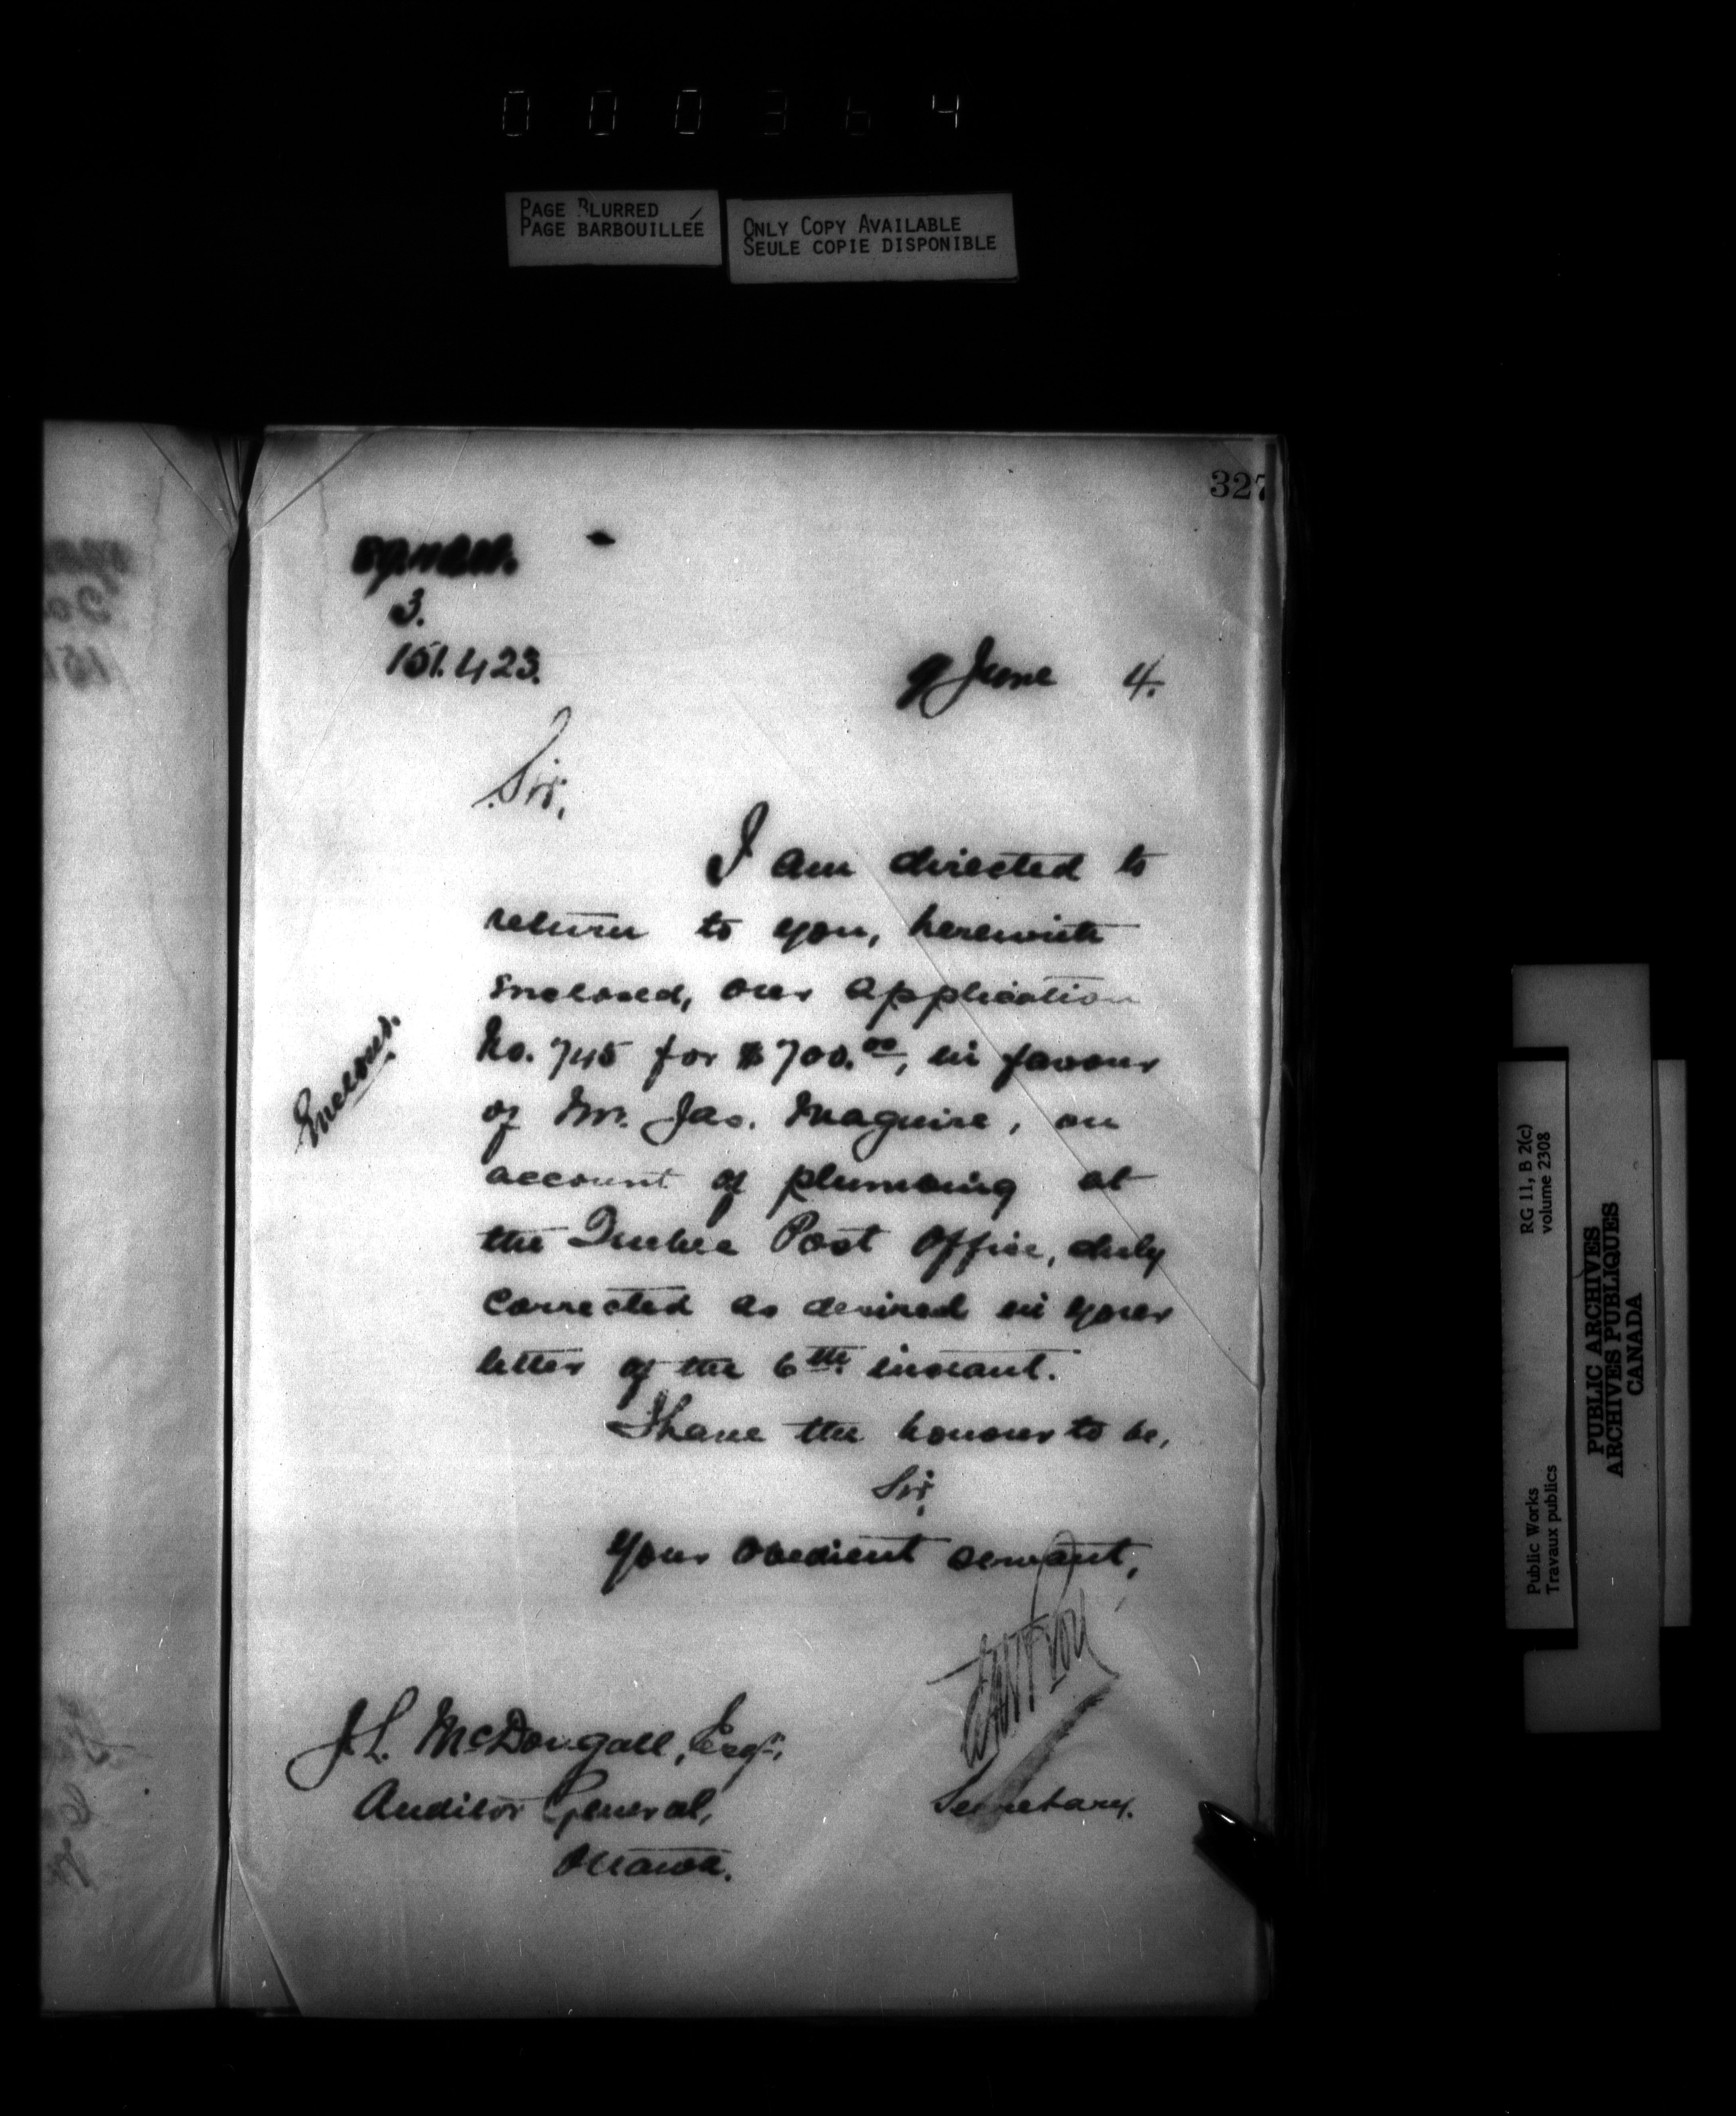 000364
PAGE BLURRED
PAGE BARBOUILLÉE
ONLY COPY AVAILABLE
SEULE COPIE DISPONIBLE
327
3.
151.423.
9 June 4.
Sir,
I am directed to
return to you, herewith
enclosed, our application
No. 745 for $700.00, in favour
of Mr. Jas. Maguire, on
account of plumbing at
the Quebec Post Office, duly
corrected as desired in your
letter of the 6th instant.
I have the honour to be,
Sir,
Your obedient servant,
Secretary.
J.L. McDougall, Esq.,
Auditor General,
Ottawa.
Public Works
Travaux publics
RG 11, B 2(c)
volume 2308
PUBLIC ARCHIVES
ARCHIVES PUBLIQUES
CANADA